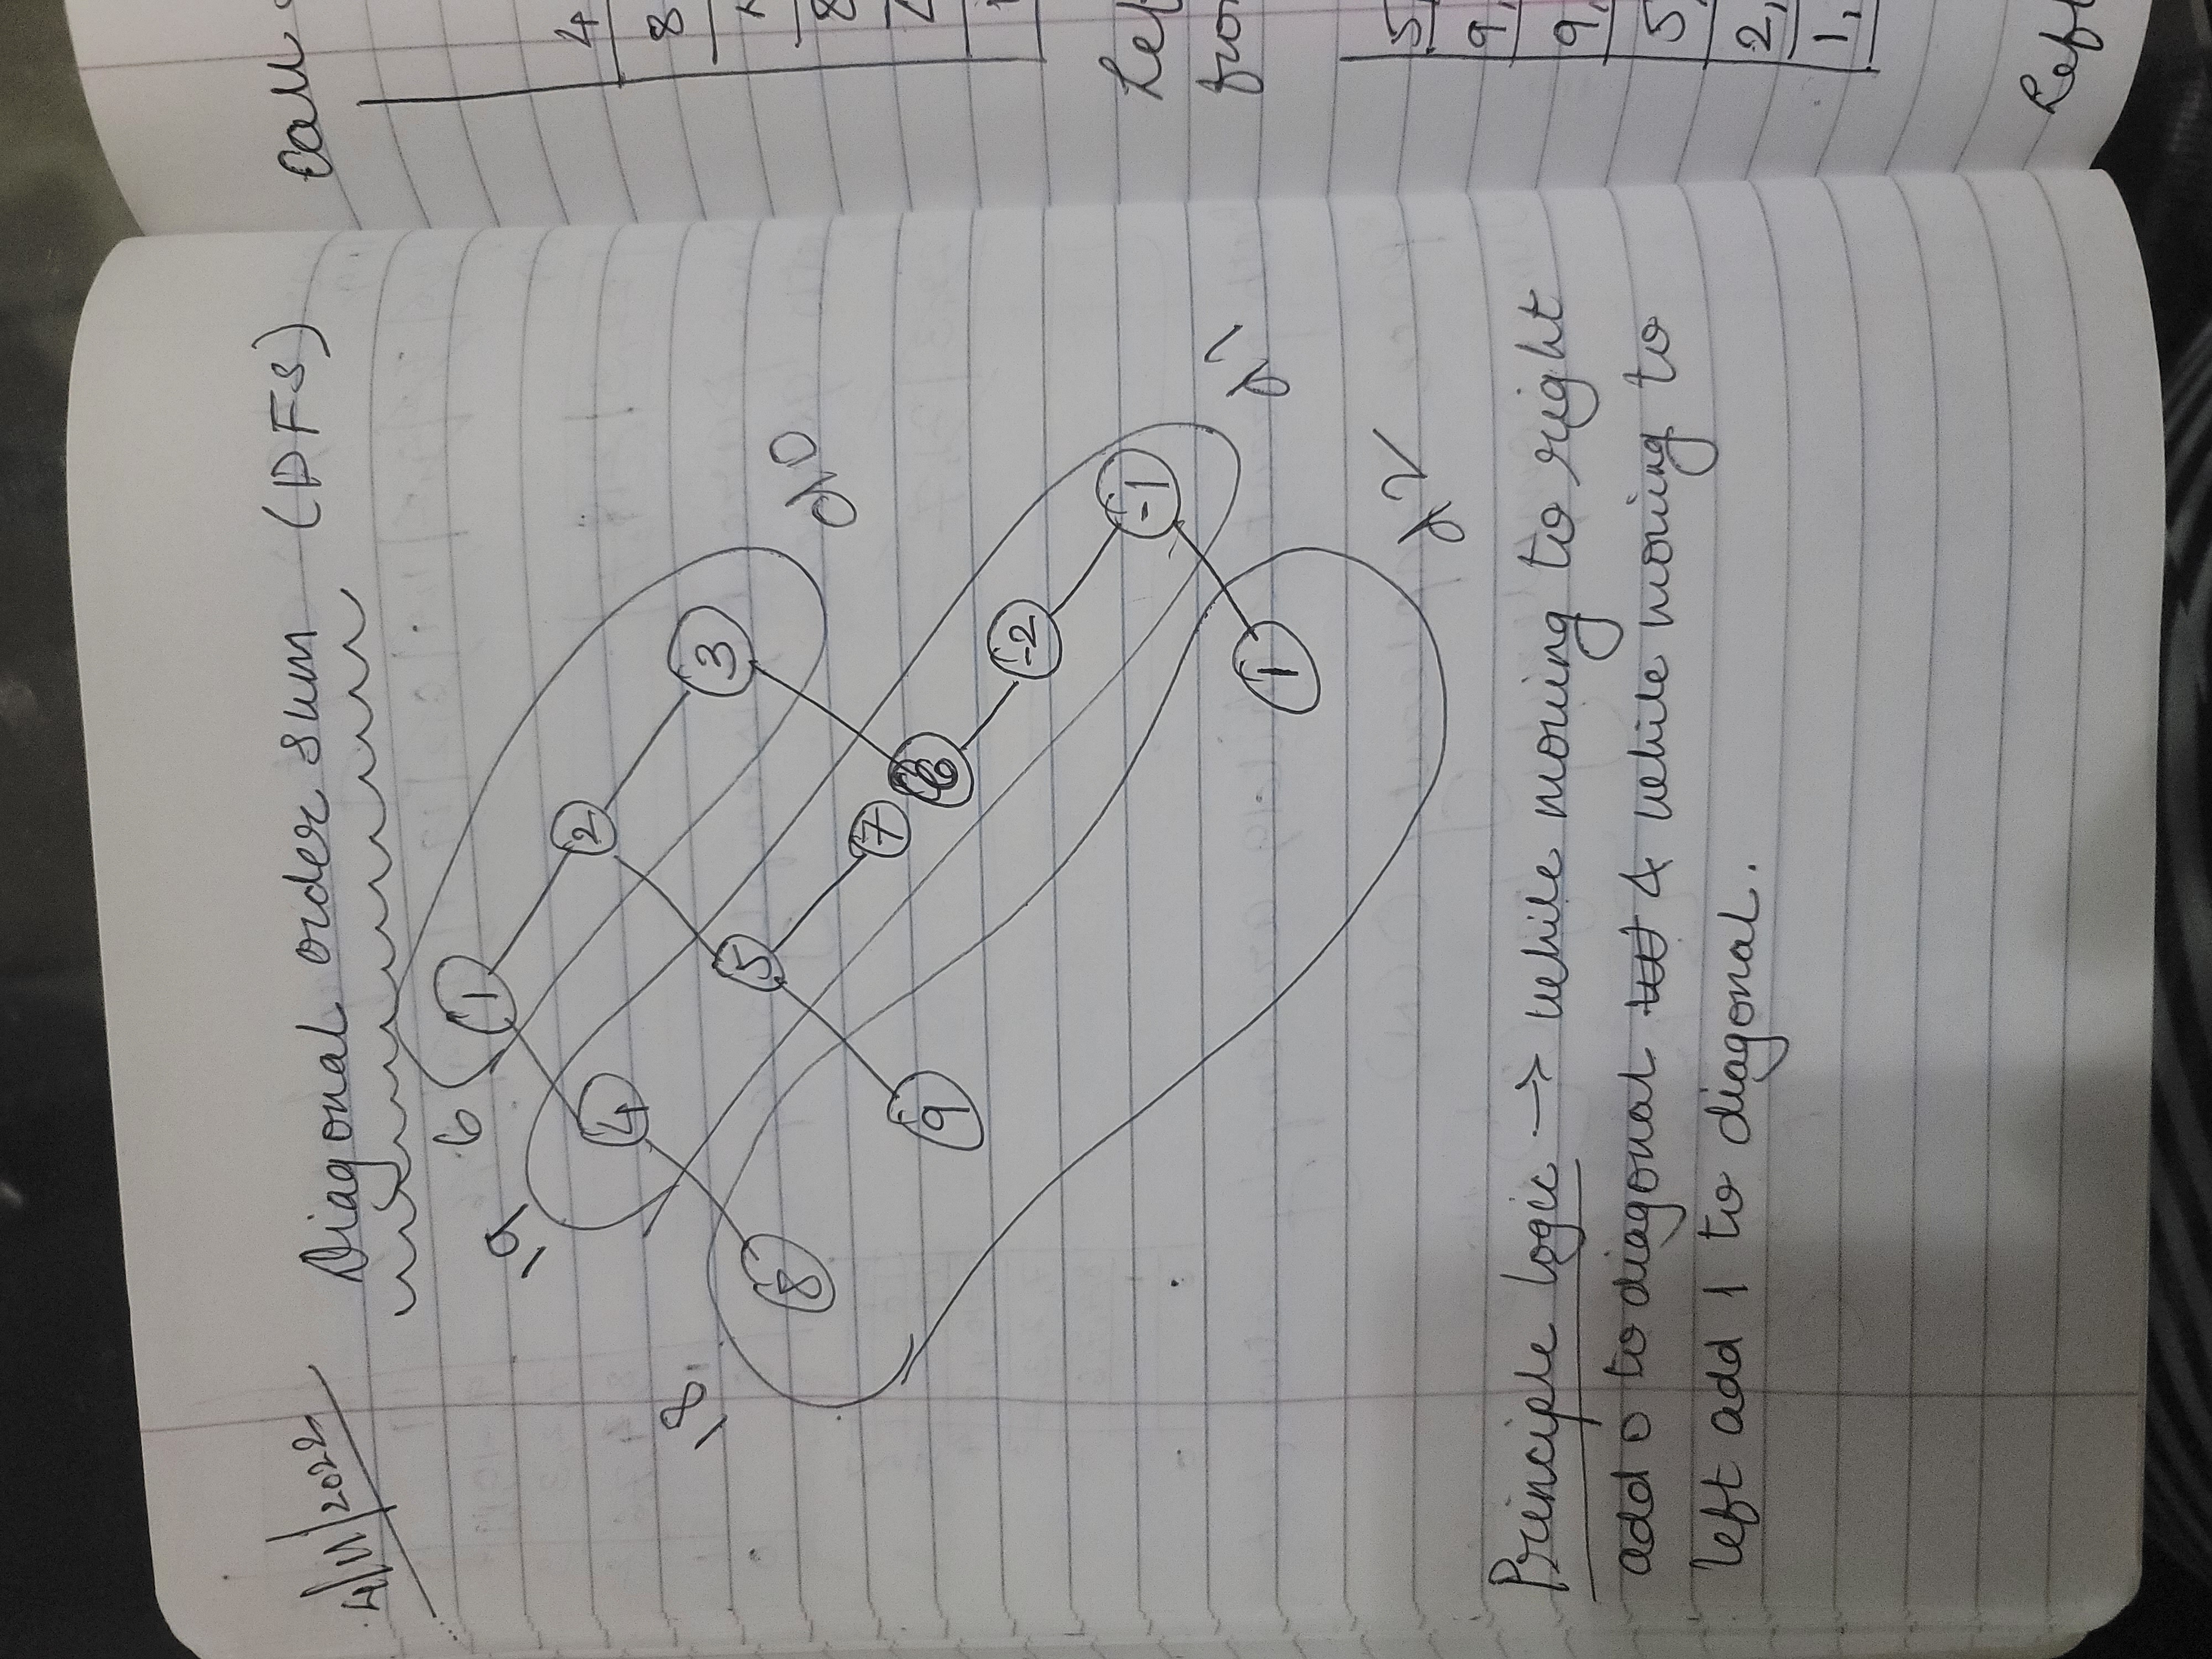 4/11/2022
Diagonal order sum (DFS)
6
1
19
2
4
18
3
8
5
d0
7
6
9
-2
-1
1
d1
d2
Principle logic → while moving to right
add 0 to diagonal & while moving to
left add 1 to diagonal.
call
4
8
8
5,
9,
9,
5,
2,
1,